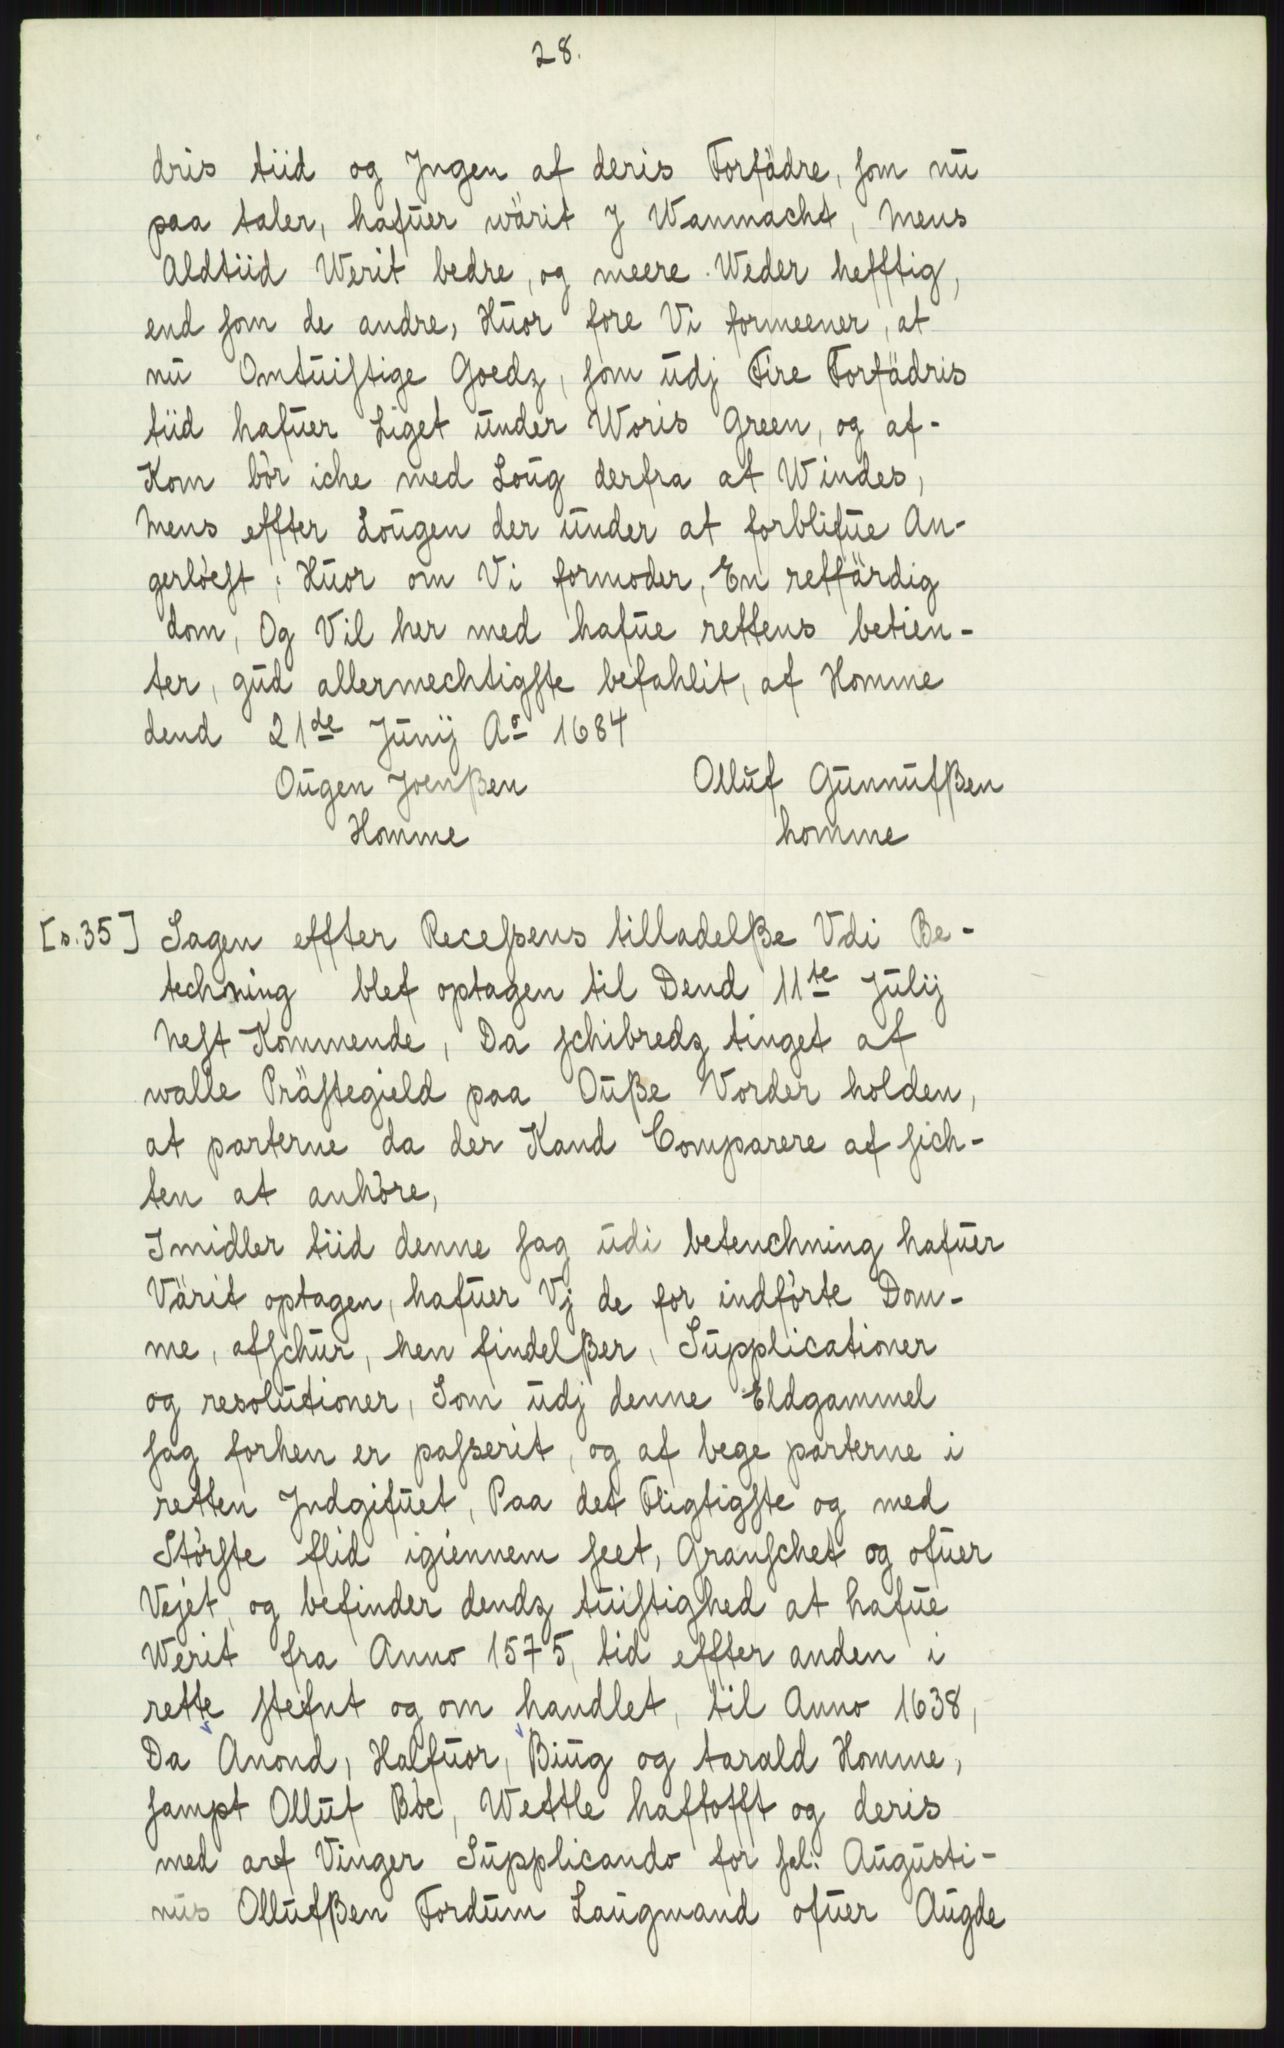 28.
dris tiid og Jngen af deris Forfädre, som nu
paa taler, hafuer wärit J Wanmacht, Mens
Aldtiid Werit bedre, og meere Weder hefftig,
end som de andre, Huor fore Vi formeener, at
nu Omtuistige Goedz, som udj Fire Forfädris
tiid hafuer Liget under Woris Green, og af-
Kom bör iche med Loug derfra at Windes,
Mens effter Lougen der under at forblifue An-
gerlöest; Huor om Vi formoder, En rettfärdig
dom, Og Vil her med hafue rettens betien-
ter, gud allermechtigste befahlit, af Homme
dend 21de Junij Ao 1684
Ougen Joenßen Olluf Gunnufßen
Homme homme
[s.35] Sagen effter Recessens tilladelße Vdi Be-
techning blef optagen til Dend 11te Julij
Nest Kommende, Da schibredz tinget af
walle Prästegield paa Ouße Vorder holden,
at parterne da der Kand Comparere af sich-
ten at anhöre,
Imidler tiid denne sag udi betenchning hafuer
Värit optagen, hafuer Vj de for indförte Dom-
me, afschur, hen findelßer, Supplicationer
og resolutioner, Som udj denne Eldgammel
sag forhen er passerit, og af bege parterne i
retten Jndgifuet, Paa det Fligtigste og med
Störste flid igiennem seet, Granschet og ofuer
Vejet, og befinder dendz tuistighed at hafue
Werit fra Anno 1575, tid effter anden i
rette stefnt og om handlet, til Anno 1638,
Da Anond, Halfuor, Biug og tarald Homme,
sampt Olluf Böe, Wettle haftofft og deris
med arf Vinger Supplicando for sel: Augusti-
nus Ollufßen Fordum Laugmand ofuer Augde